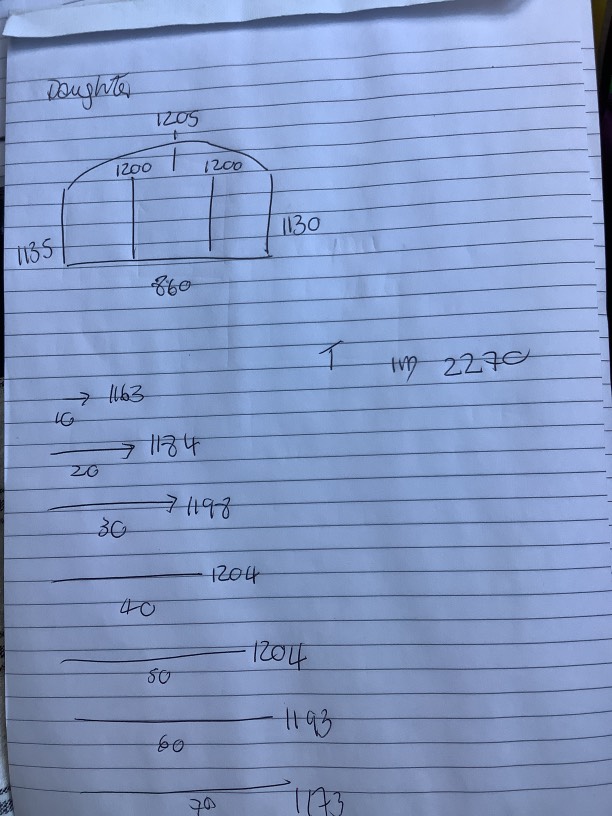 Daughter
1205
1200 1200
1135 1130
860
2270
10 → 1163
20 → 1184
30 → 1198
40 1204
50 1204
60 1193
70 1173